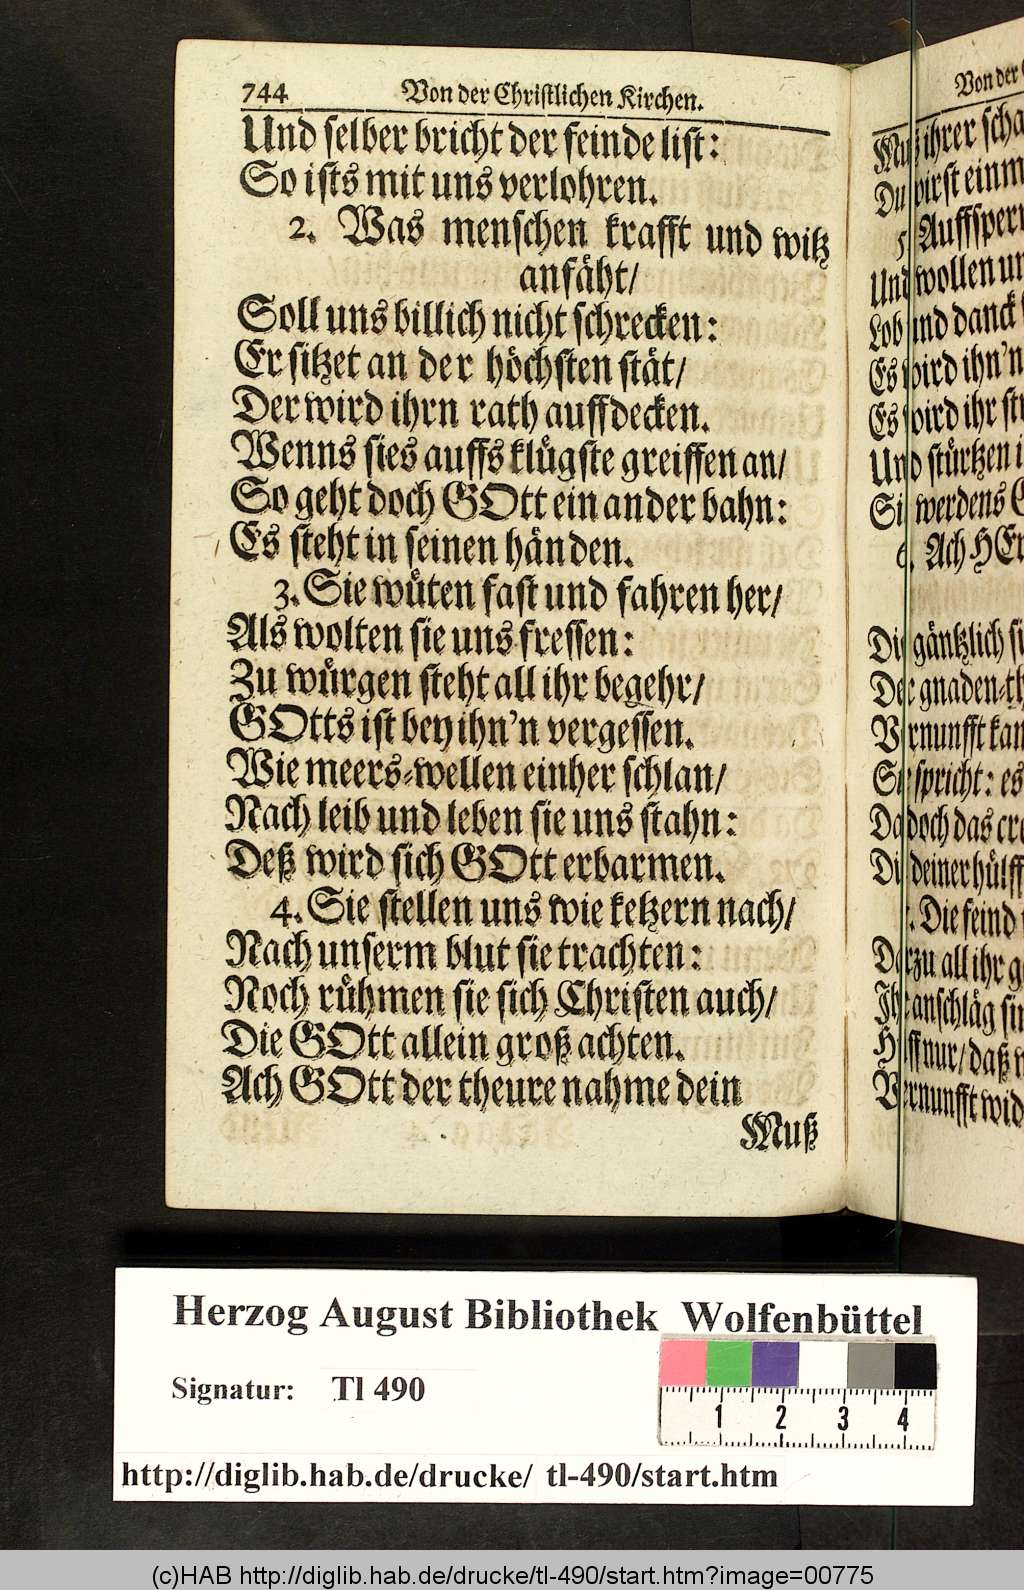 744 Von der Christlichen Kirchen.
Und selber bricht der feinde list:
So ists mit uns verlohren.
2. Was menschen krafft und witz
anfäht/
Soll uns billich nicht schrecken:
Er sitzet an der höchsten stät/
Der wird ihrn rath auffdecken.
Wenns sies auffs klügste greiffen an/
So geht doch GOtt ein ander bahn:
Es steht in seinen händen.
3. Sie wüten fast und fahren her/
Als wolten sie uns fressen:
Zu würgen steht all ihr begehr/
GOtts ist bey ihn'n vergessen.
Wie meers-wellen einher schlan/
Nach leib und leben sie uns stahn:
Deß wird sich GOtt erbarmen.
4. Sie stellen uns wie ketzern nach/
Nach unserm blut sie trachten:
Noch rühmen sie sich Christen auch/
Die GOtt allein groß achten.
Ach GOtt der theure nahme dein
Muß
Von der
ihrer
einm
Auffsperr
Und wollen
Lob und danck
Es wird ihn'n
Es wird ihr
Und stürtzen
Sie werdens
6. Ach HEr
Die gäntzlich
Der gnaden-th
Vernunfft kan
Sie spricht: es
Da doch das cre
Die deiner hülff
7. Die feind
Darzu all ihr
Ihr anschläg
Hilff nur/ daß
Vernunfft wid
Herzog August Bibliothek Wolfenbüttel
Signatur: Tl 490
1 2 3 4
http://diglib.hab.de/drucke/ tl-490/start.htm
(c)HAB http://diglib.hab.de/drucke/tl-490/start.htm?image=00775